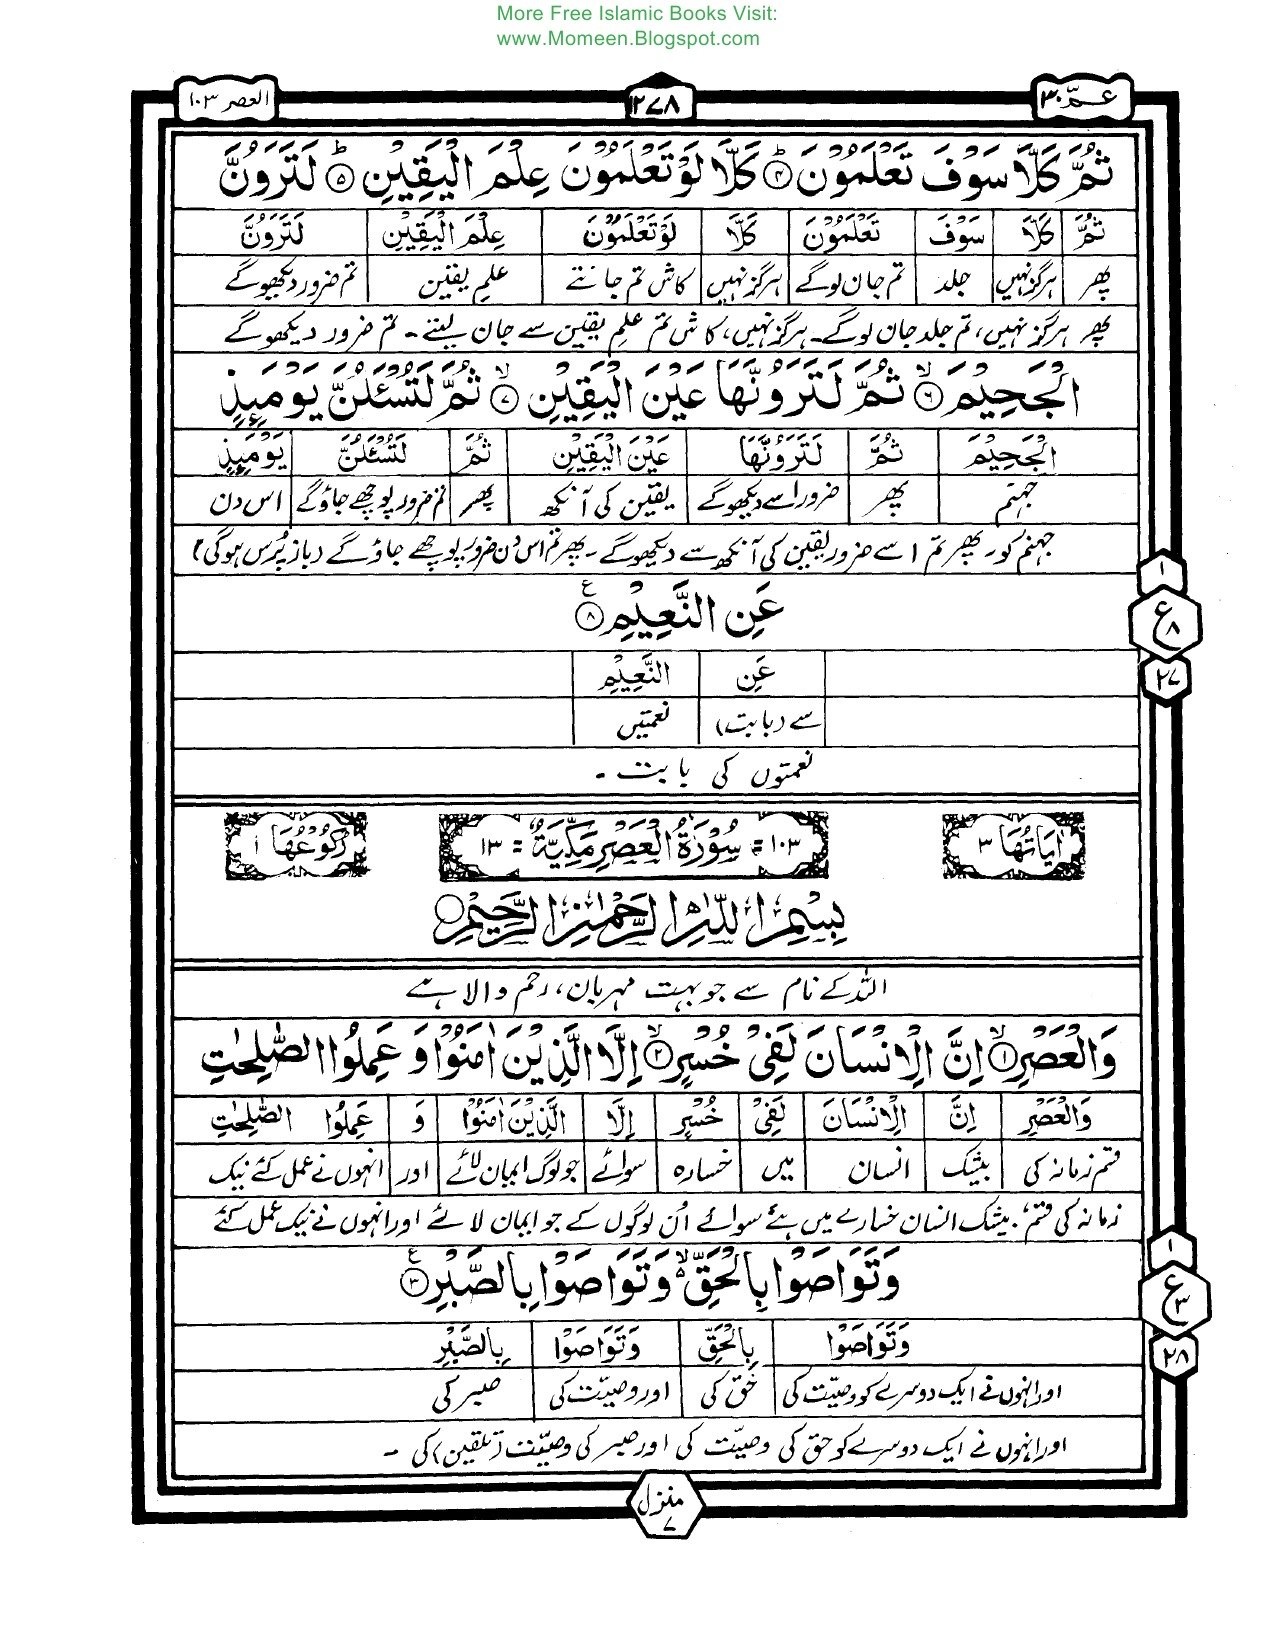 More Free Islamic Books Visit:
www.Momeen.Blogspot.com
عـمّ ۳۰ ۱۲۷۸ العصر ۱۰۳
ثُمَّ كَلَّا سَوْفَ تَعْلَمُوْنَ ﴿۴﴾ؕ كَلَّا لَوْ تَعْلَمُوْنَ عِلْمَ الْيَقِيْنِ ﴿۵﴾ؕ لَتَرَوُنَّ
ثُمَّ كَلَّا سَوْفَ تَعْلَمُوْنَ كَلَّا لَوْ تَعْلَمُوْنَ عِلْمَ الْيَقِيْنِ لَتَرَوُنَّ
پھر ہرگز نہیں جلد تم جان لو گے ہرگز نہیں کاش تم جانتے علمِ یقین تم ضرور دیکھو گے
پھر ہرگز نہیں، تم جلد جان لو گے۔ ہرگز نہیں، کاش تم علمِ یقین سے جان لیتے۔ تم ضرور دیکھو گے
الْجَحِيْمَ ﴿۶﴾ۙ ثُمَّ لَتَرَوُنَّهَا عَيْنَ الْيَقِيْنِ ﴿۷﴾ۙ ثُمَّ لَتُسْـَٔلُنَّ يَوْمَىِٕذٍ
الْجَحِيْمَ ثُمَّ لَتَرَوُنَّهَا عَيْنَ الْيَقِيْنِ ثُمَّ لَتُسْـَٔلُنَّ يَوْمَىِٕذٍ
جہنم پھر ضرور اسے دیکھو گے یقین کی آنکھ پھر تم ضرور پوچھے جاؤ گے اس دن
جہنم کو۔ پھر تم اسے ضرور یقین کی آنکھ سے دیکھو گے۔ پھر تم اس دن ضرور پوچھے جاؤ گے (باز پُرس ہو گی)
عَنِ النَّعِيْمِ ﴿۸﴾ع
۱
ع ۸
۲۷
عَنِ النَّعِيْمِ
سے (بابت) نعمتیں
نعمتوں کی بابت۔
اٰيَاتُهَا ۳ ۱۰۳ = سُوْرَةُ الْعَصْرِ مَكِّيَّةٌ = ۱۳ رُكُوْعُهَا ۱
بِسْمِ اللّٰهِ الرَّحْمٰنِ الرَّحِيْمِ
اللہ کے نام سے جو بہت مہربان، رحم والا ہے
وَالْعَصْرِ ﴿۱﴾ۙ اِنَّ الْاِنْسَانَ لَفِيْ خُسْرٍ ﴿۲﴾ۙ اِلَّا الَّذِيْنَ اٰمَنُوْا وَ عَمِلُوا الصّٰلِحٰتِ
وَالْعَصْرِ اِنَّ الْاِنْسَانَ لَفِيْ خُسْرٍ اِلَّا الَّذِيْنَ اٰمَنُوْا وَ عَمِلُوا الصّٰلِحٰتِ
قسم زمانہ کی بیشک انسان میں خسارہ سوائے جو لوگ ایمان لائے اور انہوں نے عمل کئے نیک
زمانہ کی قسم، بیشک انسان خسارے میں ہے سوائے اُن لوگوں کے جو ایمان لائے اور انہوں نے نیک عمل کئے
وَتَوَاصَوْا بِالْحَقِّ ۙ۬ وَتَوَاصَوْا بِالصَّبْرِ ﴿۳﴾ع
۱
ع ۳
۲۸
وَتَوَاصَوْا بِالْحَقِّ وَتَوَاصَوْا بِالصَّبْرِ
اور انہوں نے ایک دوسرے کو وصیّت کی حق کی اور وصیّت کی صبر کی
اور انہوں نے ایک دوسرے کو حق کی وصیّت کی اور صبر کی وصیّت (تلقین) کی۔
منزل ۷